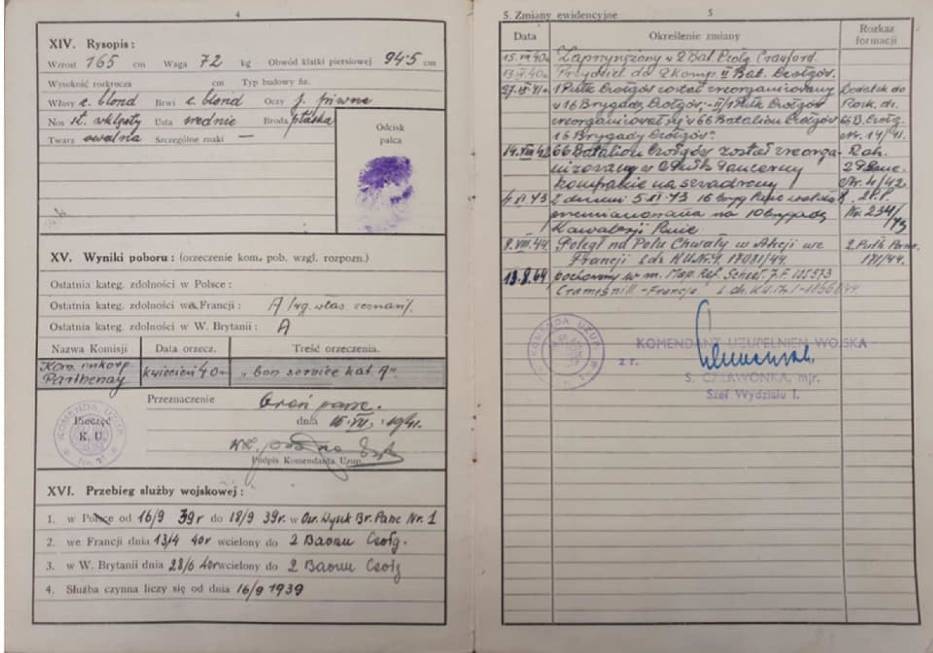 4
XIV. Rysopis:
Wzrost 165 cm Waga 72 kg Obwód klatki piersiowej 94·5 cm
Wysokość rozkrocza cm Typ budowy fiz.
Włosy c. blond Brwi c. blond Oczy j. piwne
Nos śr. wklęsły Usta średnie Broda płaska
Twarz owalna Szczególne znaki —
Odcisk
palca
XV. Wyniki poboru: (orzeczenie kom. pob. wzgl. rozpozn.)
Ostatnia kateg. zdolności w Polsce:
Ostatnia kateg. zdolności we Francji: A /wg. włas. zeznań/.
Ostatnia kateg. zdolności w W. Brytanii: A
Nazwa Komisji Data orzecz. Treść orzeczenia.
Parthenay kwiecień 40 „bon service kat. A"
Przeznaczenie Broń panc.
dnia 15. VII. 1941.
Pieczęć
K. U.
Podpis Komendanta Uzup.
XVI. Przebieg służby wojskowej:
1. w Polsce od 16/9 39r do 18/9 39r. w Br. Panc Nr. 1
2. we Francji dnia 13/4 40r wcielony do 2 Baonu Czołg.
3. w W. Brytanii dnia 28/6 40r wcielony do 2 Baonu Czołg
4. Służba czynna liczy się od dnia 16/9 1939
5. Zmiany ewidencyjne 5
Data Określenie zmiany Rozkaz
formacji
Zaprzysiężony w 2 Bat. Czołg. Crawford.
Przydział do 2 komp. II Bat. Czołgów.
1 Pułk Czołgów został zreorganizowany Dodatek do
w 16 Brygadę Czołgów,- II/1 Pułk Czołgów Rozk. dz.
zreorganizował się w 66 Batalion Czołgów 66 B. Czołg.
16 Brygady Czołgów. Nr. 14/41.
14.VIII 42 66 Batalion Czołgów został zreorga- Rozk.
nizowany w 2 Pułk Pancerny 2 P. Panc.
kompanie na szwadrony Nr. 4/42.
Z dniem 5.XI.43 16 Bryg Panc została R. 2P.P.
przemianowana na 10 Brygadę Nr. 234/43
Kawalerji Panc
8.VIII.44 Poległ na Polu Chwały w Akcji we 2 Pułk Panc.
Francji 171/44.
13.8.44 pochowany w m. Map. Ref. Sheet 7.F.
- Francja
KOMENDA UZUP.
KOMENDANT UZUPEŁNIEŃ WOJSKA
z r.
S. CZERWONKA, mjr.
Szef Wydziału I.